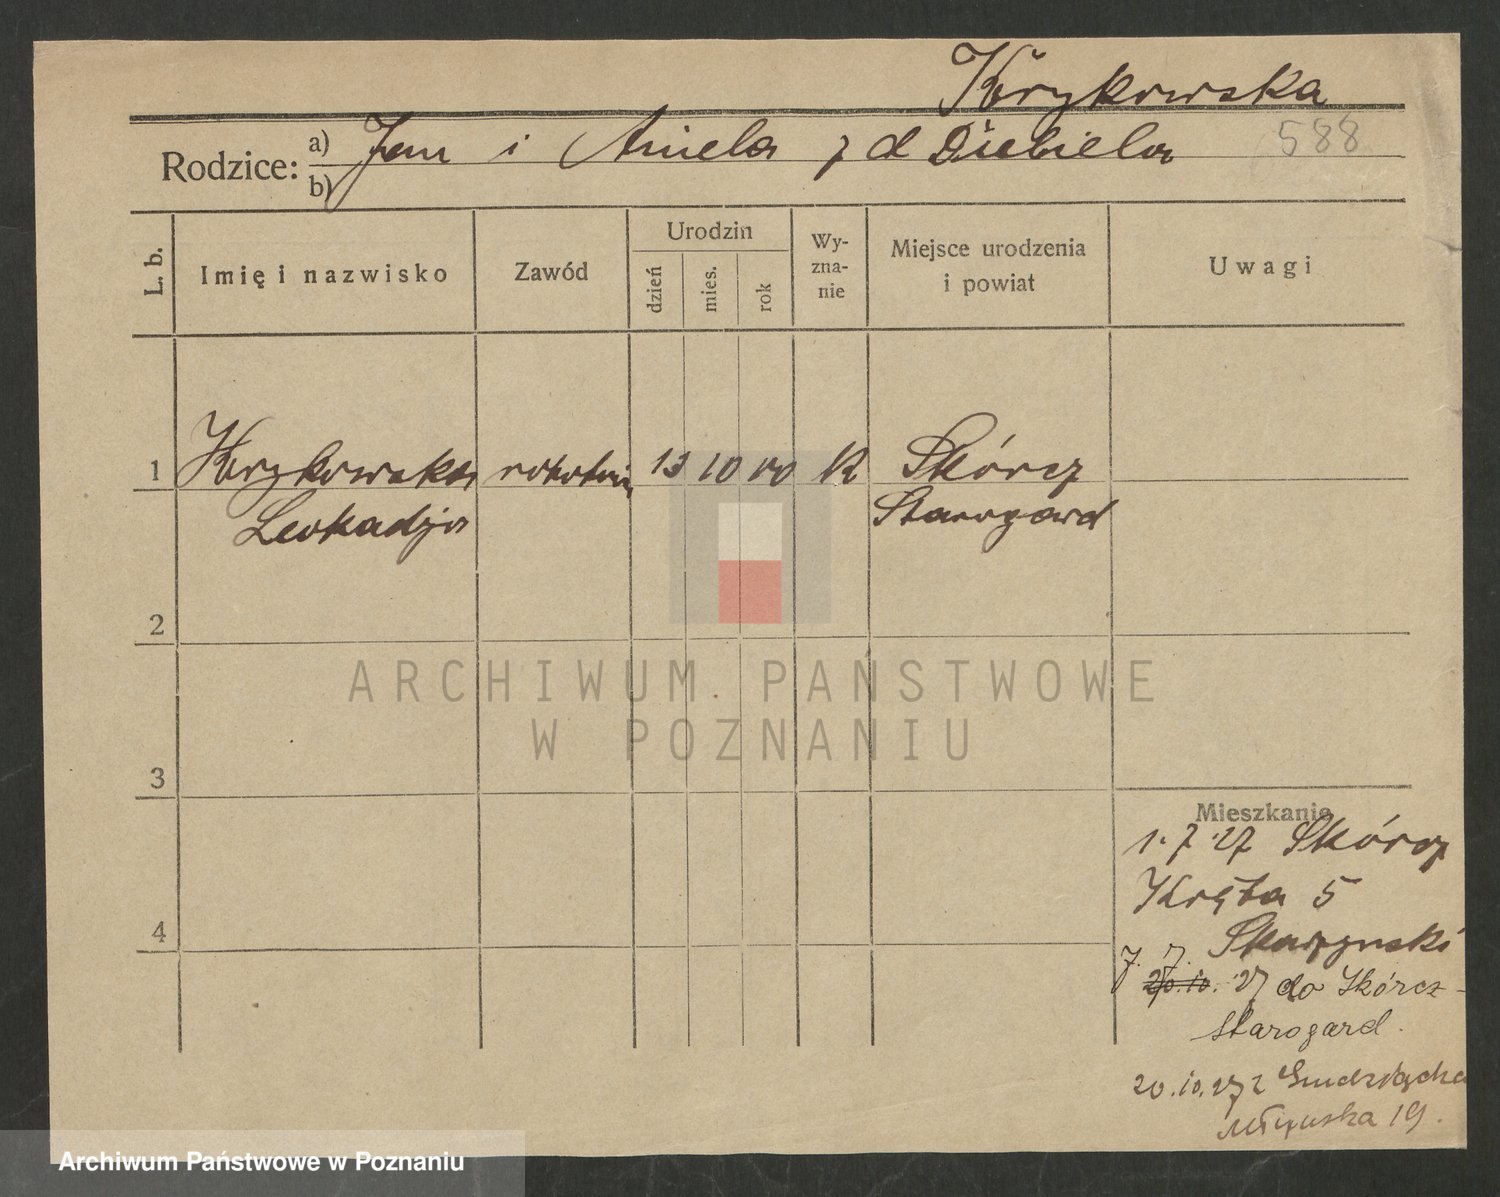 Krzykowska
Rodzice: a) Jan i Aniela z d Dziebiela 588
b)
L. b. Imię i nazwisko Zawód Urodzin dzień mies. rok Wy-zna-nie Miejsce urodzenia i powiat Uwagi
1 Krzykowska robotnic 13 10 00 K Skórcz
Leokadja Starogard
2
ARCHIWUM PAŃSTWOWE
W POZNANIU
3
Mieszkanie
1. 7 27 Skórcz
Kręta 5
4
Skarzynski
7. 7. 20.10. 27 do Skórcz-
Starogard.
20.10.27 z Grudziądza
Młyńska 19.
Archiwum Państwowe w Poznaniu